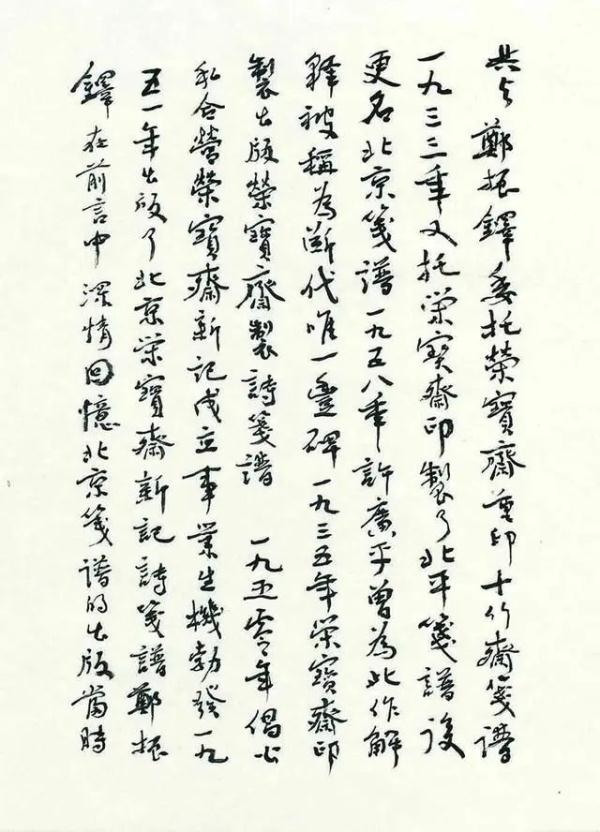 共与鄭振鐸委托榮寶齋重印十竹齋箋譜
一九三三年又托榮寶齋印製了北平箋譜後
更名北京箋譜一九五八年許廣平曾為此作解
釋被稱為断代唯一豐碑一九三五年榮寶齋印
製出版榮寶齋製詩箋譜 一九五零年偈公
私合營榮寶齋新記成立事業生機勃發一九
五一年出版了北京榮寶齋新記詩箋譜鄭振
鐸在前言中深情回憶北京箋譜的出版當時